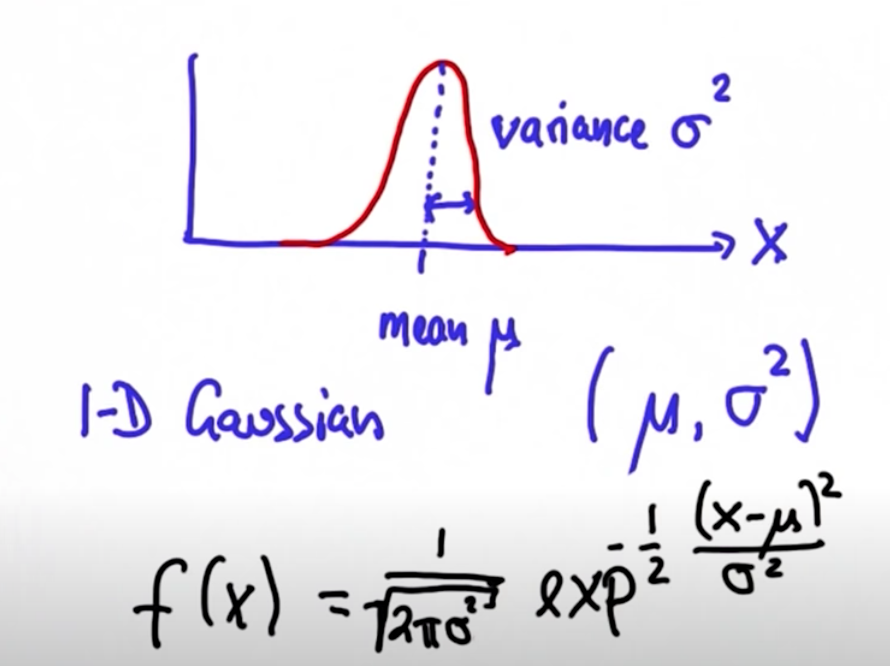 variance σ²
X
mean μ
1-D Gaussian (μ, σ²)
f(x) = 1/√(2πσ²) exp -1/2 (x-μ)²/σ²